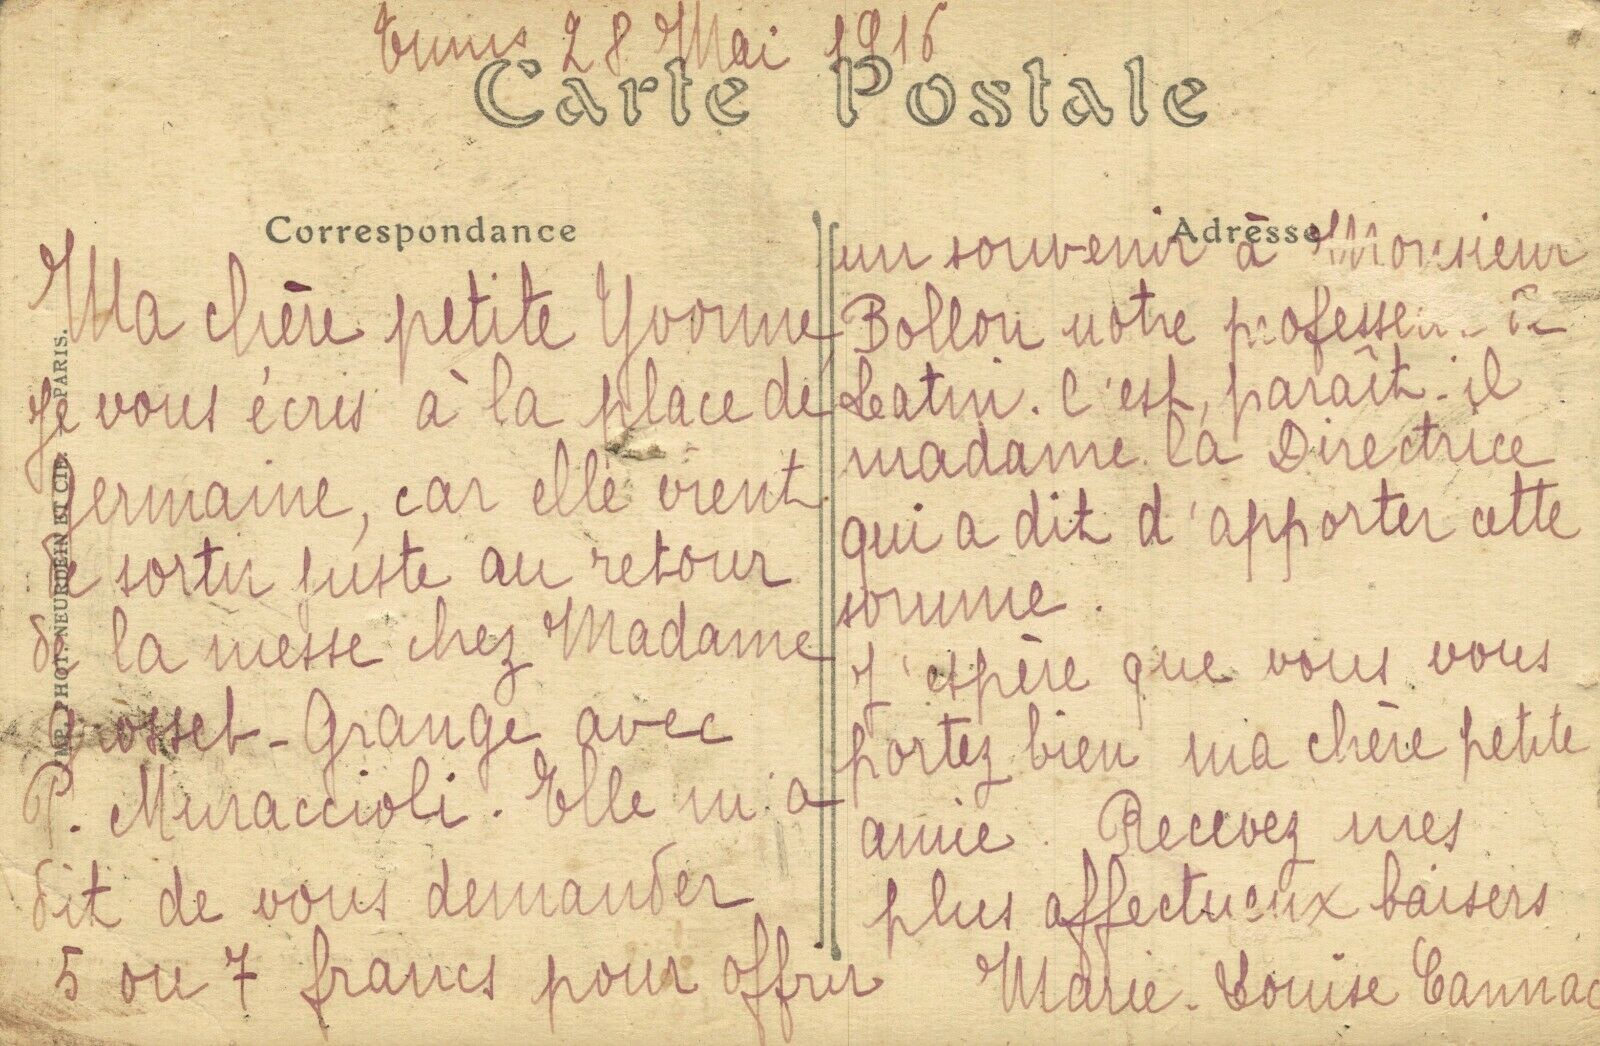 Tunis 28 Mai 1916
Carte Postale
Correspondance
Ma chère petite Yvonne,
Je vous écris à la place de
Germaine, car elle vient
de sortir juste au retour
de la messe chez Madame
Grosset-Grange avec
P. Muraccioli. Elle m'a
dit de vous demander
5 ou 7 francs pour offrir
Adresse
un souvenir à Monsieur
Bollon notre professeur de
Latin. C'est, paraît-il
madame la Directrice
qui a dit d'apporter cette
somme.
J'espère que vous vous
portez bien ma chère petite
amie. Recevez mes
plus affectueux baisers
Marie-Louise Cannac
IMP. PHOT. NEURDEIN ET CIE. PARIS.